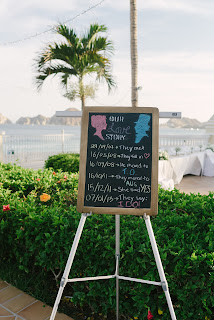 OUR
Love
STORY
29/09/07→They met
16/05/08→They fell in ♡
16/09/08→He moved to
J.O.
16/10/11→They moved to
AUS
15/12/11→She said YES
07/01/13→They say:
I DO